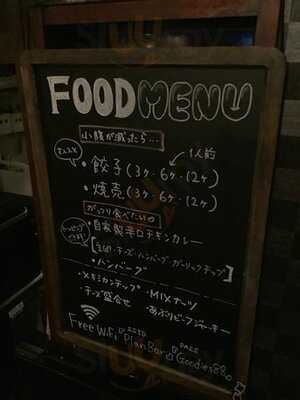 FOOD MENU
小腹が減ったら…
1人前
・餃子(3ヶ・6ヶ・12ヶ)
・焼売(3ヶ・6ヶ・12ヶ)
がっつり食べたいの
・自家製辛口チキンカレー
チーズ・ハンバーグ・ガーリックチップ
・ハンバーグ
・メキシカンチップ ・MIXナッツ
・チーズ盛合せ ・あぶりビーフジャーキー
Free WiFi
SSID PASS
PlanBar Goodies880